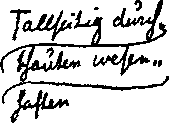 allseitig durch„
schauten wesen„
haften